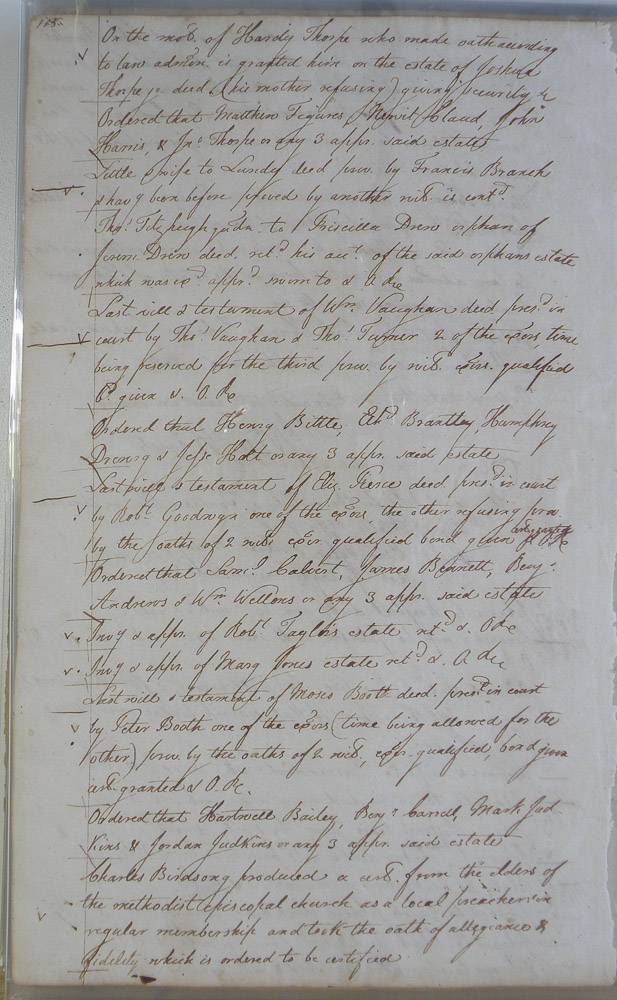 118
On the mo. of Hardy Thorpe who made oath according
to law admon. is granted him on the estate of Joshua
Thorpe jr decd (his mother refusing) giving security &
Ordered that Matthew Figures, Newit Claud, John
Harris, & Jno Thorpe or any 3 appr. said estate
Little wife to Lundy deed prov. by Francis Branch
& havg been before proved by another wit. is contd.
Thos. Fitzhugh gardn. to Priscilla Drew orphan of
Jerem. Drew decd. retd. his acct. of the said orphans estate
which was exd. apprd. sworn to & O Rc
Last will & testament of Wm. Vaughan decd presd. in
court by Thos. Vaughan & Thos. Turner 2 of the exors, time
being reserved for the third prov. by wit. exrs. qualified
bd. given &. O. Rc
Ordered that Henry Bittle, Ethd. Brantley Humphrey
Drewry & Jesse Holt or any 3 appr. said estate
Last will & testament of Eliz. Pierce decd. presd. in court
by Robt. Goodwyn one of the exors, the other refusing prov.
by the oaths of 2 wits exor. qualified bond given cert. granted & O Rc
Ordered that Saml. Calvert, James Bennett, Benj.
Andrews & Wm. Wellons or any 3 appr. said estate
Invy & appr. of Robt Taylors estate retd &. O Rc
Invy & appr. of Marg Jones estate retd. &. O Rc
Last will & testament of Moses Booth decd. presd. in court
by Peter Booth one of the exors (time being allowed for the
other) prov. by the oaths of 2 wit, exor. qualified, bond given
cert. granted & O. R.
Ordered that Hartwell Bailey, Benj. Carrell, Mark Jud
kins & Jordan Judkins or any 3 appr. said estate
Charles Birdsong produced a cert. from the elders of
the methodist episcopal church as a local preacher in
regular membership and took the oath of allegiance &
fidelity which is ordered to be certified